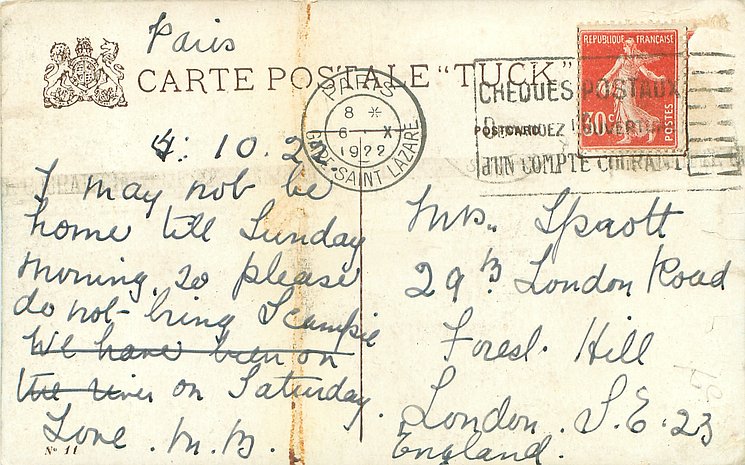 Paris
CARTE POSTALE "TUCK"
PARIS
8
6 X
1922
GARE SAINT LAZARE
CHEQUES POSTAUX
D'UN COMPTE COURANT
POSTCARD
REPUBLIQUE FRANÇAISE
30c
POSTES
4. 10. 22.
I may not be
home till Sunday
morning, so please
do not bring Scampie
We have been on
the river on Saturday.
Love. M. B.
Mrs. Sprott
29B London Road
Forest Hill
London. S.E. 23
England.
No 11